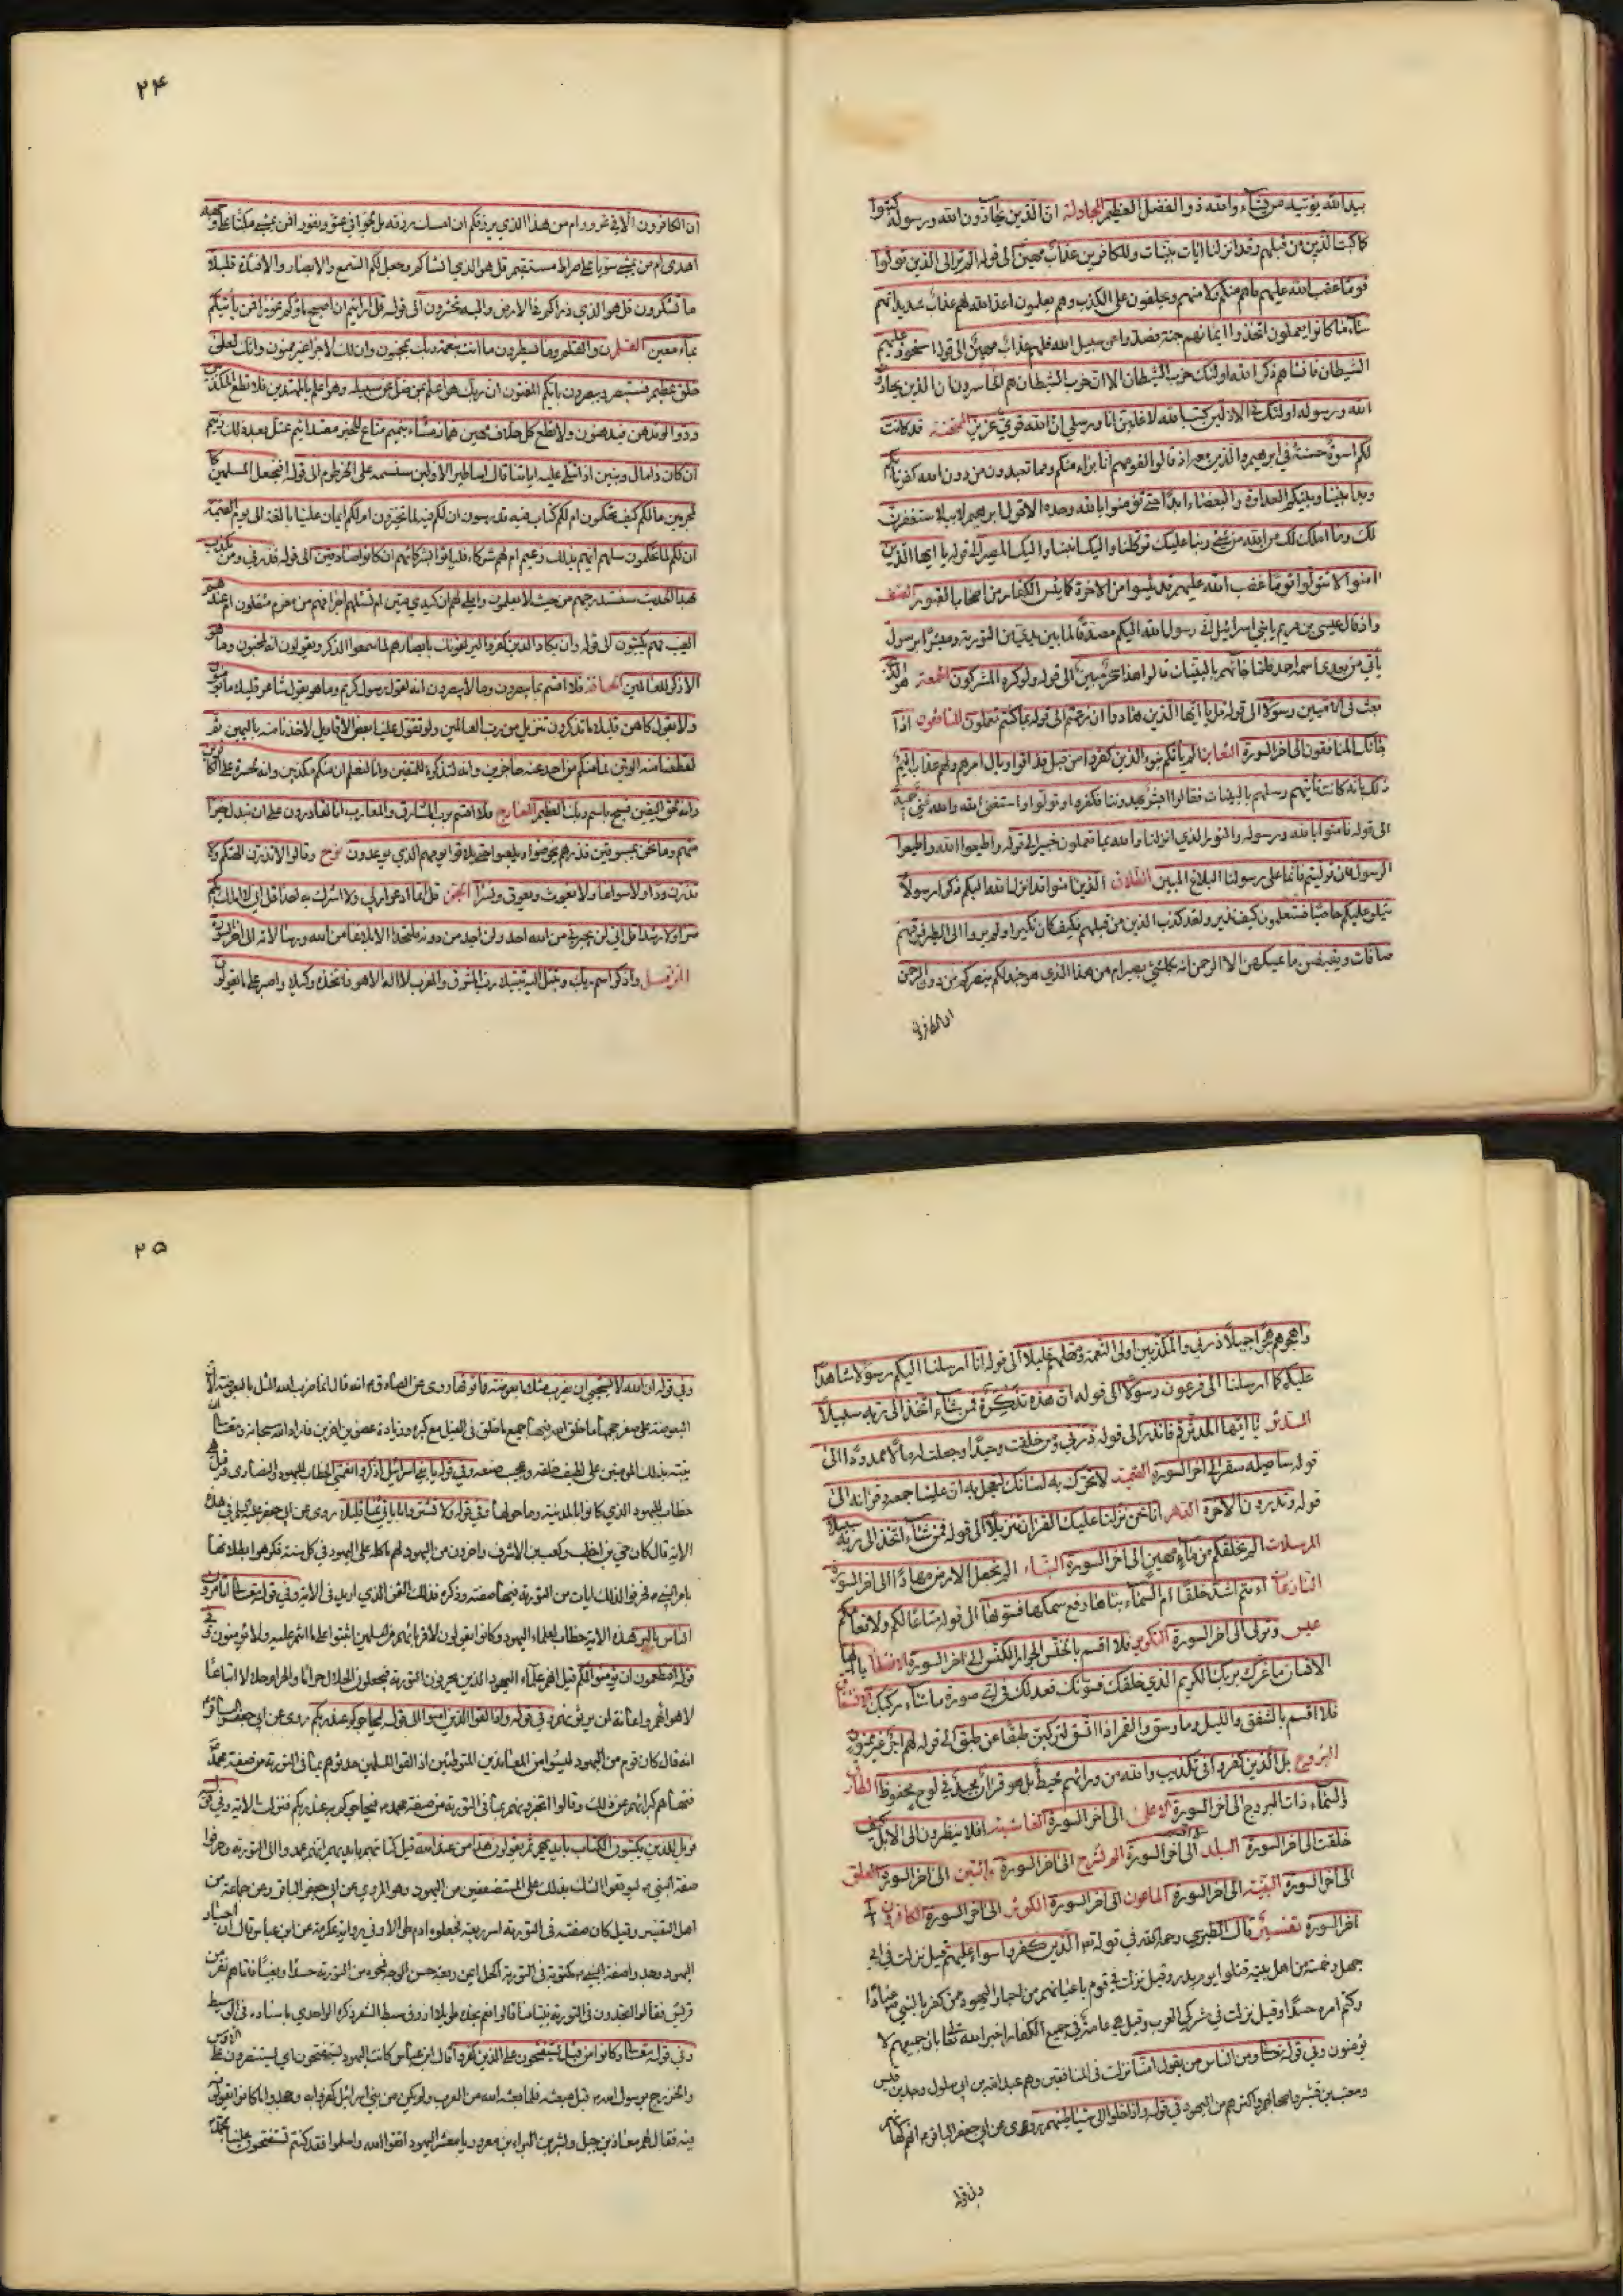 بيد الله يؤتيه من يشاء والله ذو الفضل العظيم المجادلة ان الذين يحادون الله ورسوله كبتوا
كما كبت الذين من قبلهم وقد انزلنا ايات بينات وللكافرين عذاب مهين الى قوله الم تر الى الذين تولوا
قوما غضب الله عليهم ما هم منكم ولا منهم ويحلفون على الكذب وهم يعلمون اعد الله لهم عذابا شديدا انهم
ساء ما كانوا يعملون اتخذوا ايمانهم جنة فصدوا عن سبيل الله فلهم عذاب مهين الى قوله استحوذ عليهم
الشيطان فانساهم ذكر الله اولئك حزب الشيطان الا ان حزب الشيطان هم الخاسرون ان الذين يحادون
الله ورسوله اولئك في الاذلين كتب الله لاغلبن انا ورسلي ان الله قوي عزيز الممتحنة قد كانت
لكم اسوة حسنة في ابرهيم والذين معه اذ قالوا لقومهم انا براء منكم ومما تعبدون من دون الله كفرنا بكم
وبدا بيننا وبينكم العداوة والبغضاء ابدا حتى تؤمنوا بالله وحده الا قول ابرهيم لابيه لاستغفرن
لك وما املك لك من الله من شيء ربنا عليك توكلنا واليك انبنا واليك المصير الى قوله يا ايها الذين
امنوا لا تتولوا قوما غضب الله عليهم قد يئسوا من الاخرة كما يئس الكفار من اصحاب القبور الصف
واذ قال عيسى بن مريم يا بني اسرائيل اني رسول الله اليكم مصدقا لما بين يدي من التورية ومبشرا برسول
يأتي من بعدي اسمه احمد فلما جاءهم بالبينات قالوا هذا سحر مبين الى قوله ولو كره المشركون الجمعة هو الذي
بعث في الاميين رسولا الى قوله قل يا ايها الذين هادوا ان زعمتم الى قوله بما كنتم تعملون المنافقون اذا
جاءك المنافقون الى اخر السورة التغابن الم يأتكم نبؤ الذين كفروا من قبل فذاقوا وبال امرهم ولهم عذاب اليم
ذلك بانه كانت تأتيهم رسلهم بالبينات فقالوا ابشر يهدوننا فكفروا وتولوا واستغنى الله والله غني حميد
الى قوله فامنوا بالله ورسوله والنور الذي انزلنا والله بما تعملون خبير الى قوله واطيعوا الله واطيعوا
الرسول فان توليتم فانما على رسولنا البلاغ المبين الطلاق الذين امنوا قد انزل الله اليكم ذكرا رسولا
يتلو عليكم حاصبا فستعلمون كيف نذير ولقد كذب الذين من قبلهم فكيف كان نكير اولم يروا الى الطير فوقهم
صافات ويقبضن ما يمسكهن الا الرحمن انه بكل شيء بصير ام من هذا الذي هو جند لكم ينصركم من دون الرحمن
ان الكافرون
٢٤
ان الكافرون الا في غرور ام من هذا الذي يرزقكم ان امسك رزقه بل لجوا في عتو ونفور افمن يمشي مكبا على وجهه
اهدى ام من يمشي سويا على صراط مستقيم قل هو الذي انشأكم وجعل لكم السمع والابصار والافئدة قليلا
ما تشكرون قل هو الذي ذرأكم في الارض واليه تحشرون الى قوله قل ارايتم ان اصبح ماؤكم غورا فمن يأتيكم
بماء معين القلم ن والقلم وما يسطرون ما انت بنعمة ربك بمجنون وان لك لاجرا غير ممنون وانك لعلى
خلق عظيم فستبصر ويبصرون بايكم المفتون ان ربك هو اعلم بمن ضل عن سبيله وهو اعلم بالمهتدين فلا تطع المكذبين
ودوا لو تدهن فيدهنون ولا تطع كل حلاف مهين هماز مشاء بنميم مناع للخير معتد اثيم عتل بعد ذلك زنيم
ان كان ذا مال وبنين اذا تتلى عليه اياتنا قال اساطير الاولين سنسمه على الخرطوم الى قوله افنجعل المسلمين كا
لمجرمين ما لكم كيف تحكمون ام لكم كتاب فيه تدرسون ان لكم فيه لما تخيرون ام لكم ايمان علينا بالغة الى يوم القيمة
ان لكم لما تحكمون سلهم ايهم بذلك زعيم ام لهم شركاء فليأتوا بشركائهم ان كانوا صادقين الى قوله فذرني ومن يكذب
بهذا الحديث سنستدرجهم من حيث لا يعلمون واملي لهم ان كيدي متين ام تسئلهم اجرا فهم من مغرم مثقلون ام عندهم
الغيب فهم يكتبون الى قوله وان يكاد الذين كفروا ليزلقونك بابصارهم لما سمعوا الذكر ويقولون انه لمجنون وما هو
الا ذكر للعالمين الحاقة فلا اقسم بما تبصرون وما لا تبصرون انه لقول رسول كريم وما هو بقول شاعر قليلا ما تؤمنون
ولا بقول كاهن قليلا ما تذكرون تنزيل من رب العالمين ولو تقول علينا بعض الاقاويل لاخذنا منه باليمين ثم
لقطعنا منه الوتين فما منكم من احد عنه حاجزين وانه لتذكرة للمتقين وانا لنعلم ان منكم مكذبين وانه لحسرة على الكافرين
وانه لحق اليقين فسبح باسم ربك العظيم المعارج فلا اقسم برب المشارق والمغارب انا لقادرون على ان نبدل خيرا
منهم وما نحن بمسبوقين فذرهم يخوضوا ويلعبوا حتى يلاقوا يومهم الذي يوعدون نوح وقالوا لا تذرن الهتكم ولا
تذرن ودا ولا سواعا ولا يغوث ويعوق ونسرا الجن قل انما ادعو ربي ولا اشرك به احدا قل اني لا املك لكم
ضرا ولا رشدا قل اني لن يجيرني من الله احد ولن اجد من دونه ملتحدا الا بلاغا من الله ورسالاته الى اخر السورة
المزمل واذكر اسم ربك وتبتل اليه تبتيلا رب المشرق والمغرب لا اله الا هو فاتخذه وكيلا واصبر على ما يقولون
واهجرهم هجرا جميلا ذرني والمكذبين اولي النعمة ومهلهم قليلا الى قوله انا ارسلنا اليكم رسولا شاهدا
عليكم كما ارسلنا الى فرعون رسولا الى قوله ان هذه تذكرة فمن شاء اتخذ الى ربه سبيلا
المدثر يا ايها المدثر قم فانذر الى قوله ذرني ومن خلقت وحيدا وجعلت له مالا ممدودا الى
قوله ساصليه سقر الى اخر السورة القيمة لا تحرك به لسانك لتعجل به ان علينا جمعه وقرانه الى
قوله وتذرون الاخرة الدهر انا نحن نزلنا عليك القران تنزيلا الى قوله فمن شاء اتخذ الى ربه سبيلا
المرسلات الم نخلقكم من ماء مهين الى اخر السورة النباء الم نجعل الارض مهادا الى اخر السورة
النازعات ءانتم اشد خلقا ام السماء بناها رفع سمكها فسويها الى قوله متاعا لكم ولانعامكم
عبس وتولى الى اخر السورة التكوير فلا اقسم بالخنس الجوار الكنس الى اخر السورة الانفطار يا ايها
الانسان ما غرك بربك الكريم الذي خلقك فسويك فعدلك في اي صورة ما شاء ركبك الانشقاق
فلا اقسم بالشفق والليل وما وسق والقمر اذا اتسق لتركبن طبقا عن طبق الى قوله لهم اجر غير ممنون
البروج بل الذين كفروا في تكذيب والله من ورائهم محيط بل هو قران مجيد في لوح محفوظ الطارق
والسماء ذات البروج الى اخر السورة الاعلى الى اخر السورة الغاشية افلا ينظرون الى الابل كيف
خلقت الى اخر السورة البلد الى اخر السورة الم نشرح الى اخر السورة والتين الى اخر السورة العلق
الى اخر السورة البينة الى اخر السورة الماعون الى اخر السورة الكوثر الى اخر السورة الكافرون الى
اخر السورة تفسير قال الطبرسي رحمه الله في قوله تعالى الذين كفروا سواء عليهم قيل نزلت في ابي
جهل وخمسة من اهل بيته قتلوا يوم بدر وقيل نزلت في قوم باعيانهم من احبار اليهود ممن كفر بالنبي عنادا
وكتم امره حسدا وقيل نزلت في مشركي العرب وقيل هي عامة في جميع الكفار اخبر الله تعالى بان جميعهم لا
يؤمنون وفي قوله تعالى ومن الناس من يقول امنا نزلت في المنافقين وهم عبد الله بن ابي سلول وجد بن قيس
ومعتب بن قشير واصحابهم واكثرهم من اليهود في قوله واذا خلوا الى شياطينهم روي عن ابي جعفر الباقر انهم كهانهم
وفي قوله
٢٥
وفي قوله ان الله لا يستحيي ان يضرب مثلا ما بعوضة فما فوقها روي عن الصادق انه قال انما ضرب الله المثل بالبعوضة لان
البعوضة على صغر حجمها خلق الله فيها جميع ما خلق في الفيل مع كبره وزيادة عضوين اخرين فاراد الله سبحانه ان
ينبه بذلك المؤمنين على لطيف خلقه وعجيب صنعه وفي قوله يا بني اسرائيل اذكروا نعمتي الخطاب لليهود والنصارى وقيل هو
خطاب لليهود الذي كانوا بالمدينة وما حولها وفي قوله ولا تشتروا باياتي ثمنا قليلا روي عن ابي جعفر في هذه
الاية قال كان حي بن اخطب وكعب بن الاشرف واخرون من اليهود لهم ماكلة على اليهود في كل سنة فكرهوا بطلانها
بامر النبي فحرفوا لذلك ايات من التورية فيها صفته وذكره فذلك الثمن الذي اريد في الاية وفي قوله تعالى اتامرون
الناس بالبر هذه الاية خطاب لعلماء اليهود وكانوا يقولون لاقربائهم من المسلمين اثبتوا على ما انتم عليه ولا يؤمنون وفي
قوله افتطمعون ان يؤمنوا لكم قيل هم علماء اليهود الذين يحرفون التورية فيجعلون الحلال حراما والحرام حلالا اتباعا
لاهوائهم واعانة لمن يرشونهم وفي قوله واذا لقوا الذين امنوا الى قوله ليحاجوكم عند ربكم روي عن ابي جعفر الباقر
انه قال كان قوم من اليهود ليسوا من المعاندين المتواطئين اذا لقوا المسلمين حدثوهم بما في التورية من صفة محمد
فنهاهم كبرائهم عن ذلك وقالوا لا تخبروهم بما في التورية من صفة محمد فيحاجوكم به عند ربكم فنزلت الاية وفي قوله
فويل للذين يكتبون الكتاب بايديهم ثم يقولون هذا من عند الله قيل كتابتهم بايديهم انهم عمدوا الى التورية وحرفوا
صفة النبي ليوقعوا الشك بذلك على المستضعفين من اليهود وهو المروي عن ابي جعفر الباقر وعن جماعة من
اهل التفسير وقيل كان صفته في التورية اسمر ربعة فجعلوه ادم طويلا وفي رواية عكرمة عن ابن عباس قال ان احبار
اليهود وجدوا صفة النبي مكتوبة في التورية اكحل اعين ربعة حسن الوجه فمحوه من التورية حسدا وبغيا فاتاهم نفر من
قريش فقالوا اتجدون في التورية نبيا منا قالوا نعم نجده طويلا ازرق سبط الشعر ذكره الواحدي باسناده في الوسيط
وفي قوله تعالى وكانوا من قبل يستفتحون على الذين كفروا قال ابن عباس كانت اليهود يستفتحون اي يستنصرون على الاوس
والخزرج برسول الله قبل مبعثه فلما بعثه الله من العرب ولم يكن من بني اسرائيل كفروا به وجحدوا ما كانوا يقولون
فيه فقال لهم معاذ بن جبل وبشر بن البراء بن معرور يا معشر اليهود اتقوا الله واسلموا فقد كنتم تستفتحون علينا بمحمد